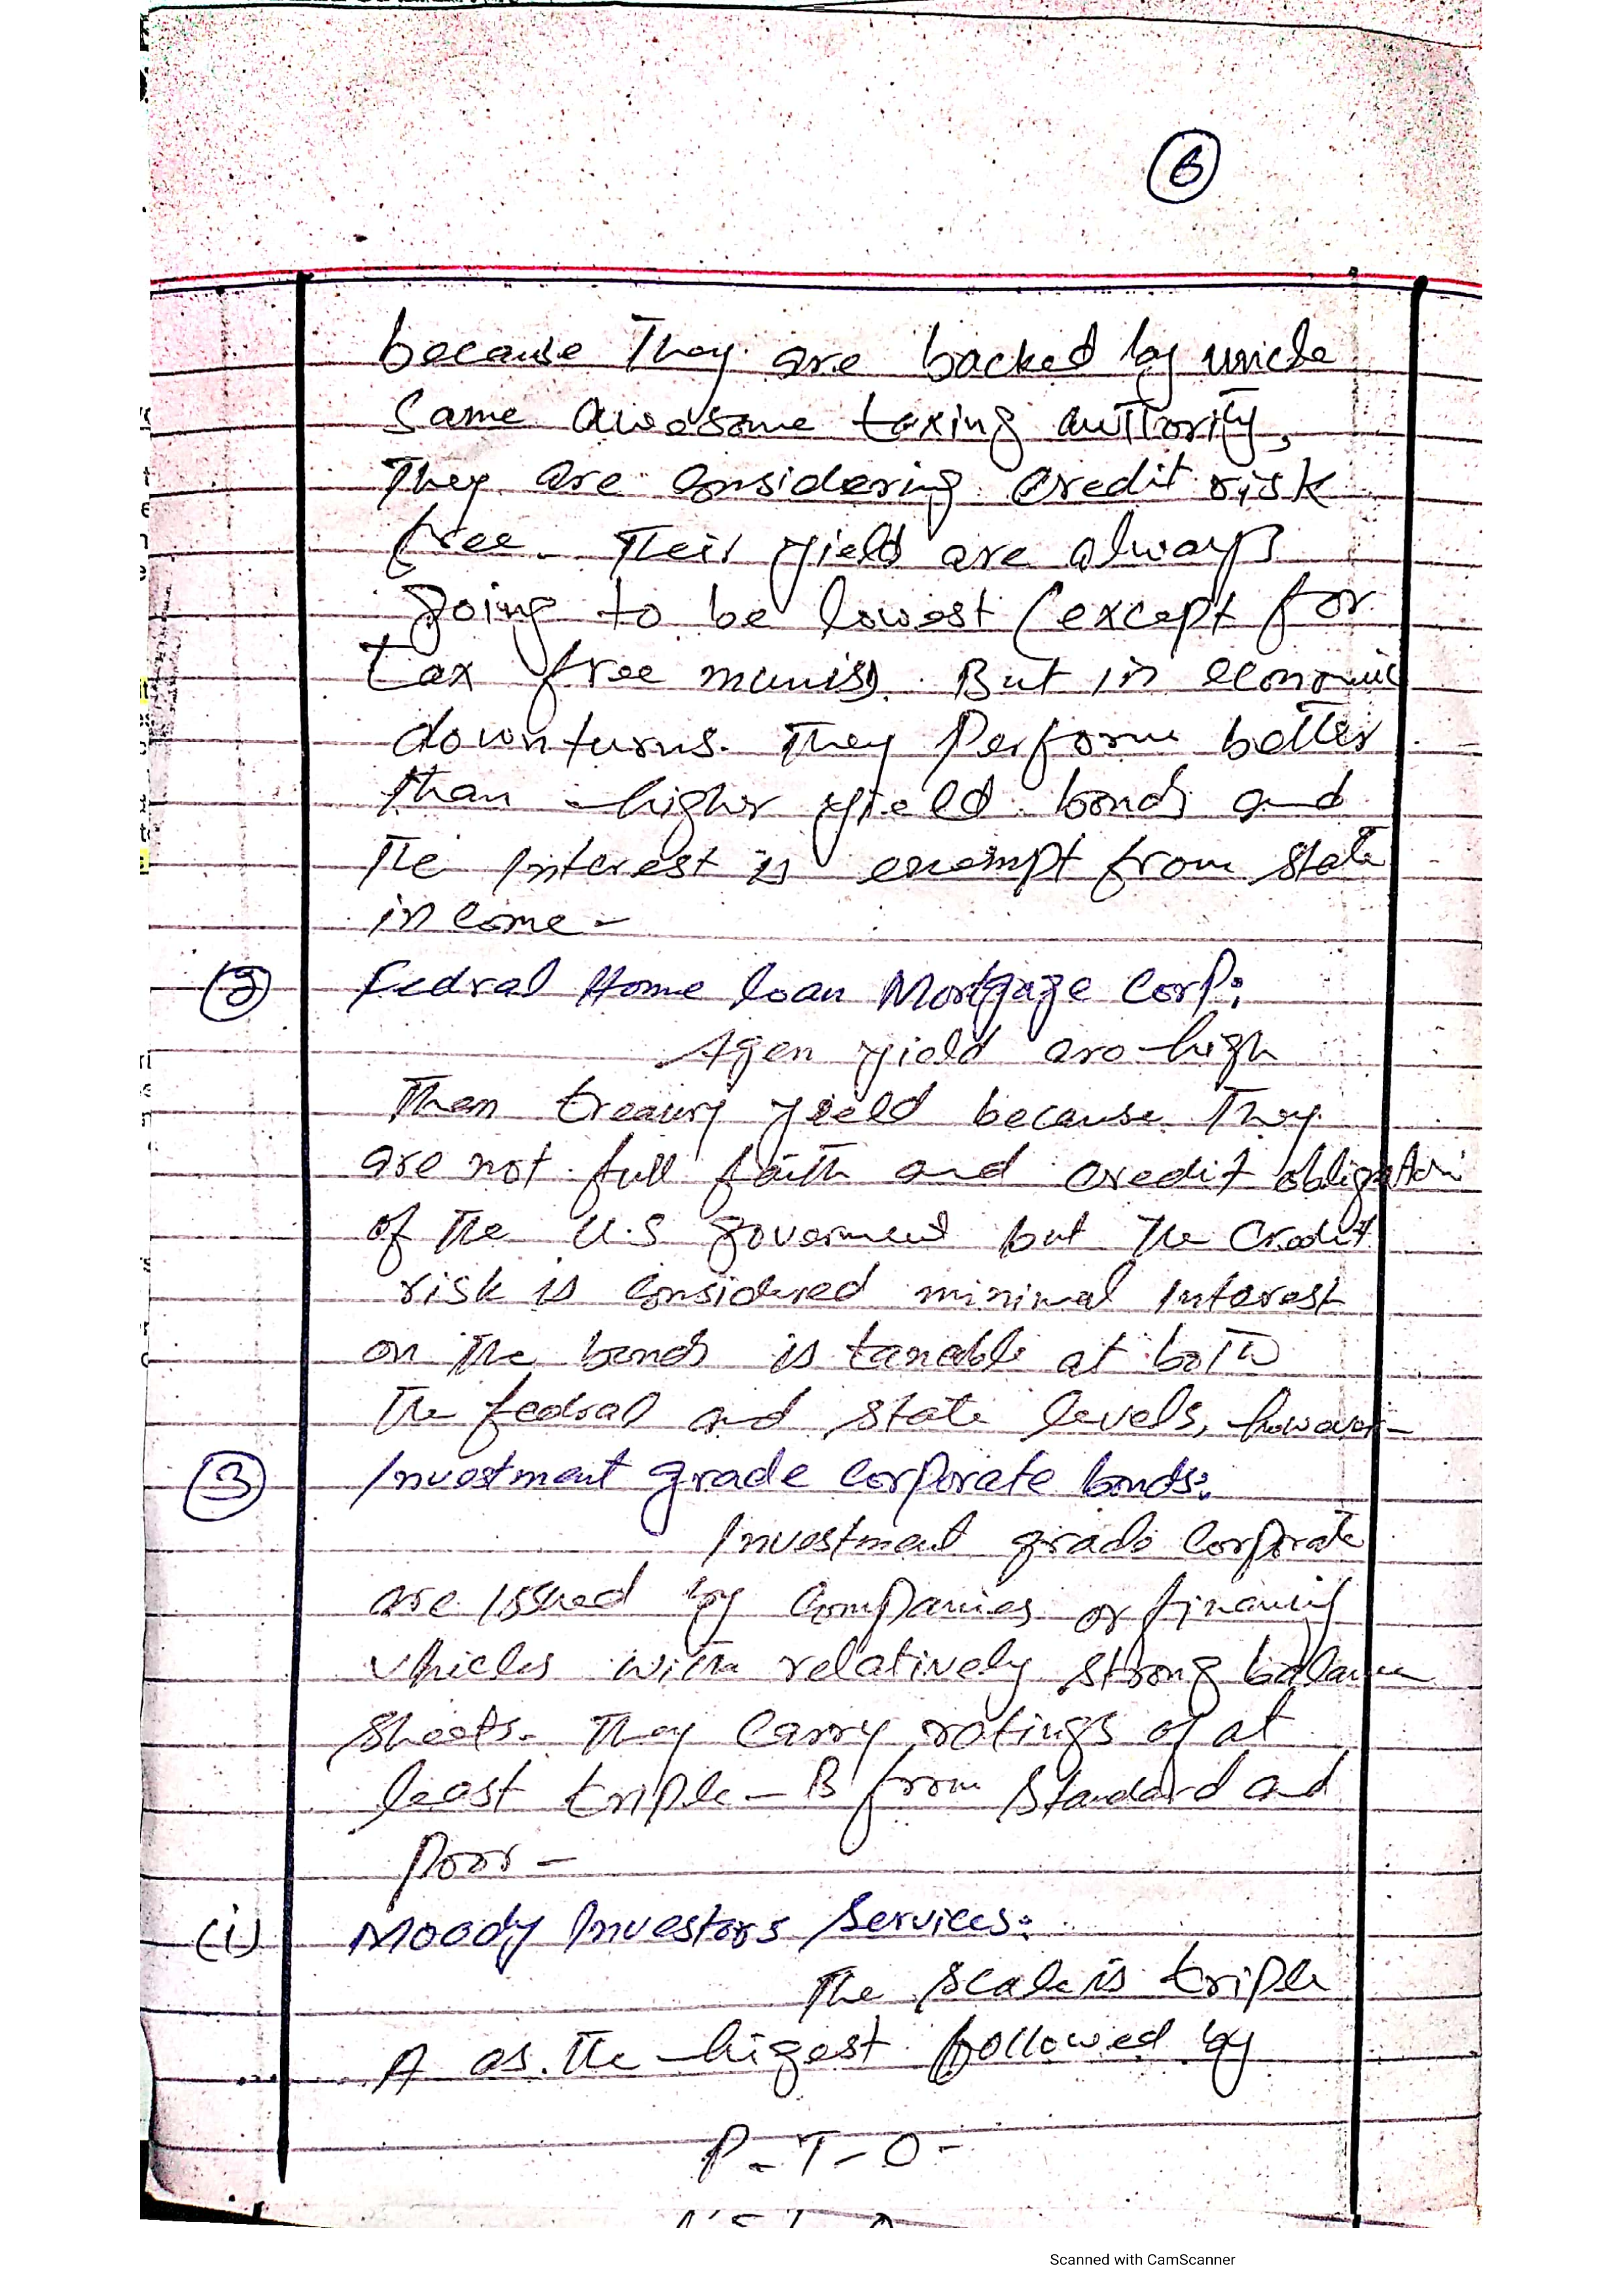 6
because They are backed by uncle
Same awesome taxing authority,
They are considering credit risk
free. Their yield are always
going to be lowest (except for
tax free munis). But in economic
downturns. They Perform better
than higher yield bonds and
the Interest is exempt from state
income -
(2) Fedral Home loan Mortgage Corp:
Agen yield are high
Then treaury yield because They
are not full faith and credit obligation
of the U.S goverment but the credit
risk is considered minimal Interest
on the bonds is taxable at both
The fedral and state levels, however -
(3) Investment grade corporate bonds:
Investment grade Corporate
are issued by Companies or financing
vhicles with relatively strong balance
Sheets. They Carry ratings of at
least triple - B from Standard and
Poor -
(i) Moody Investors Services:
The scale is triple
A as the higest followed by
P-T-O-
Scanned with CamScanner